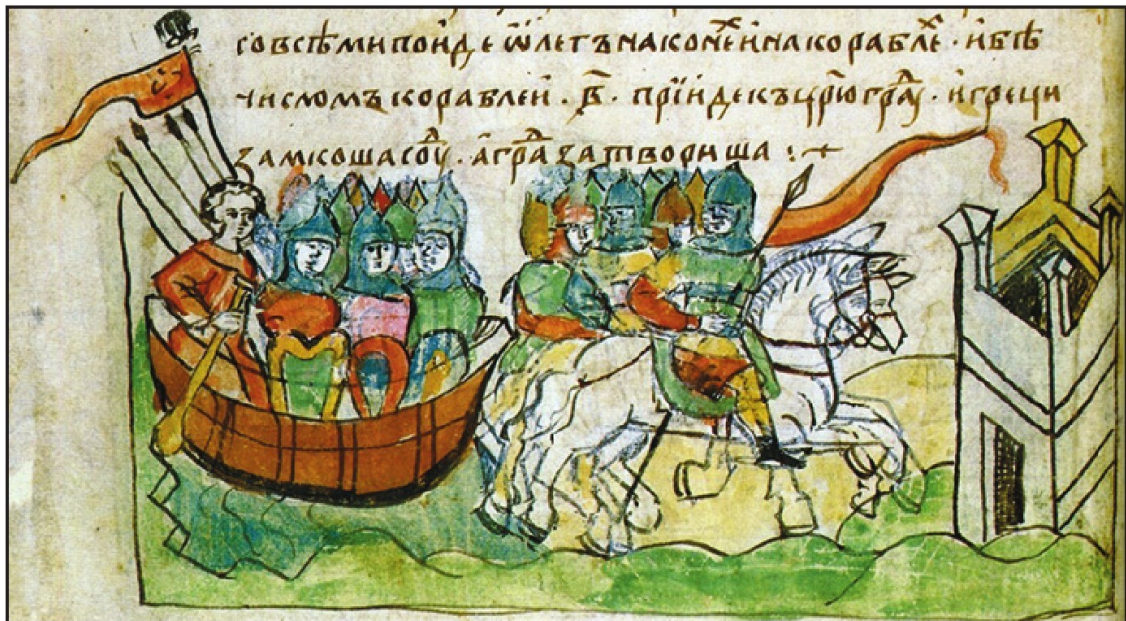 совсѣми поиде ѡлегъ на конеⷯ и на кораблеⷯ · и бѣ
числомъ кораблеи · в҃ · прїиде къ цр҃юграⷣу · и греци
замкоша соуⷣ · а граⷣ затвориша :~